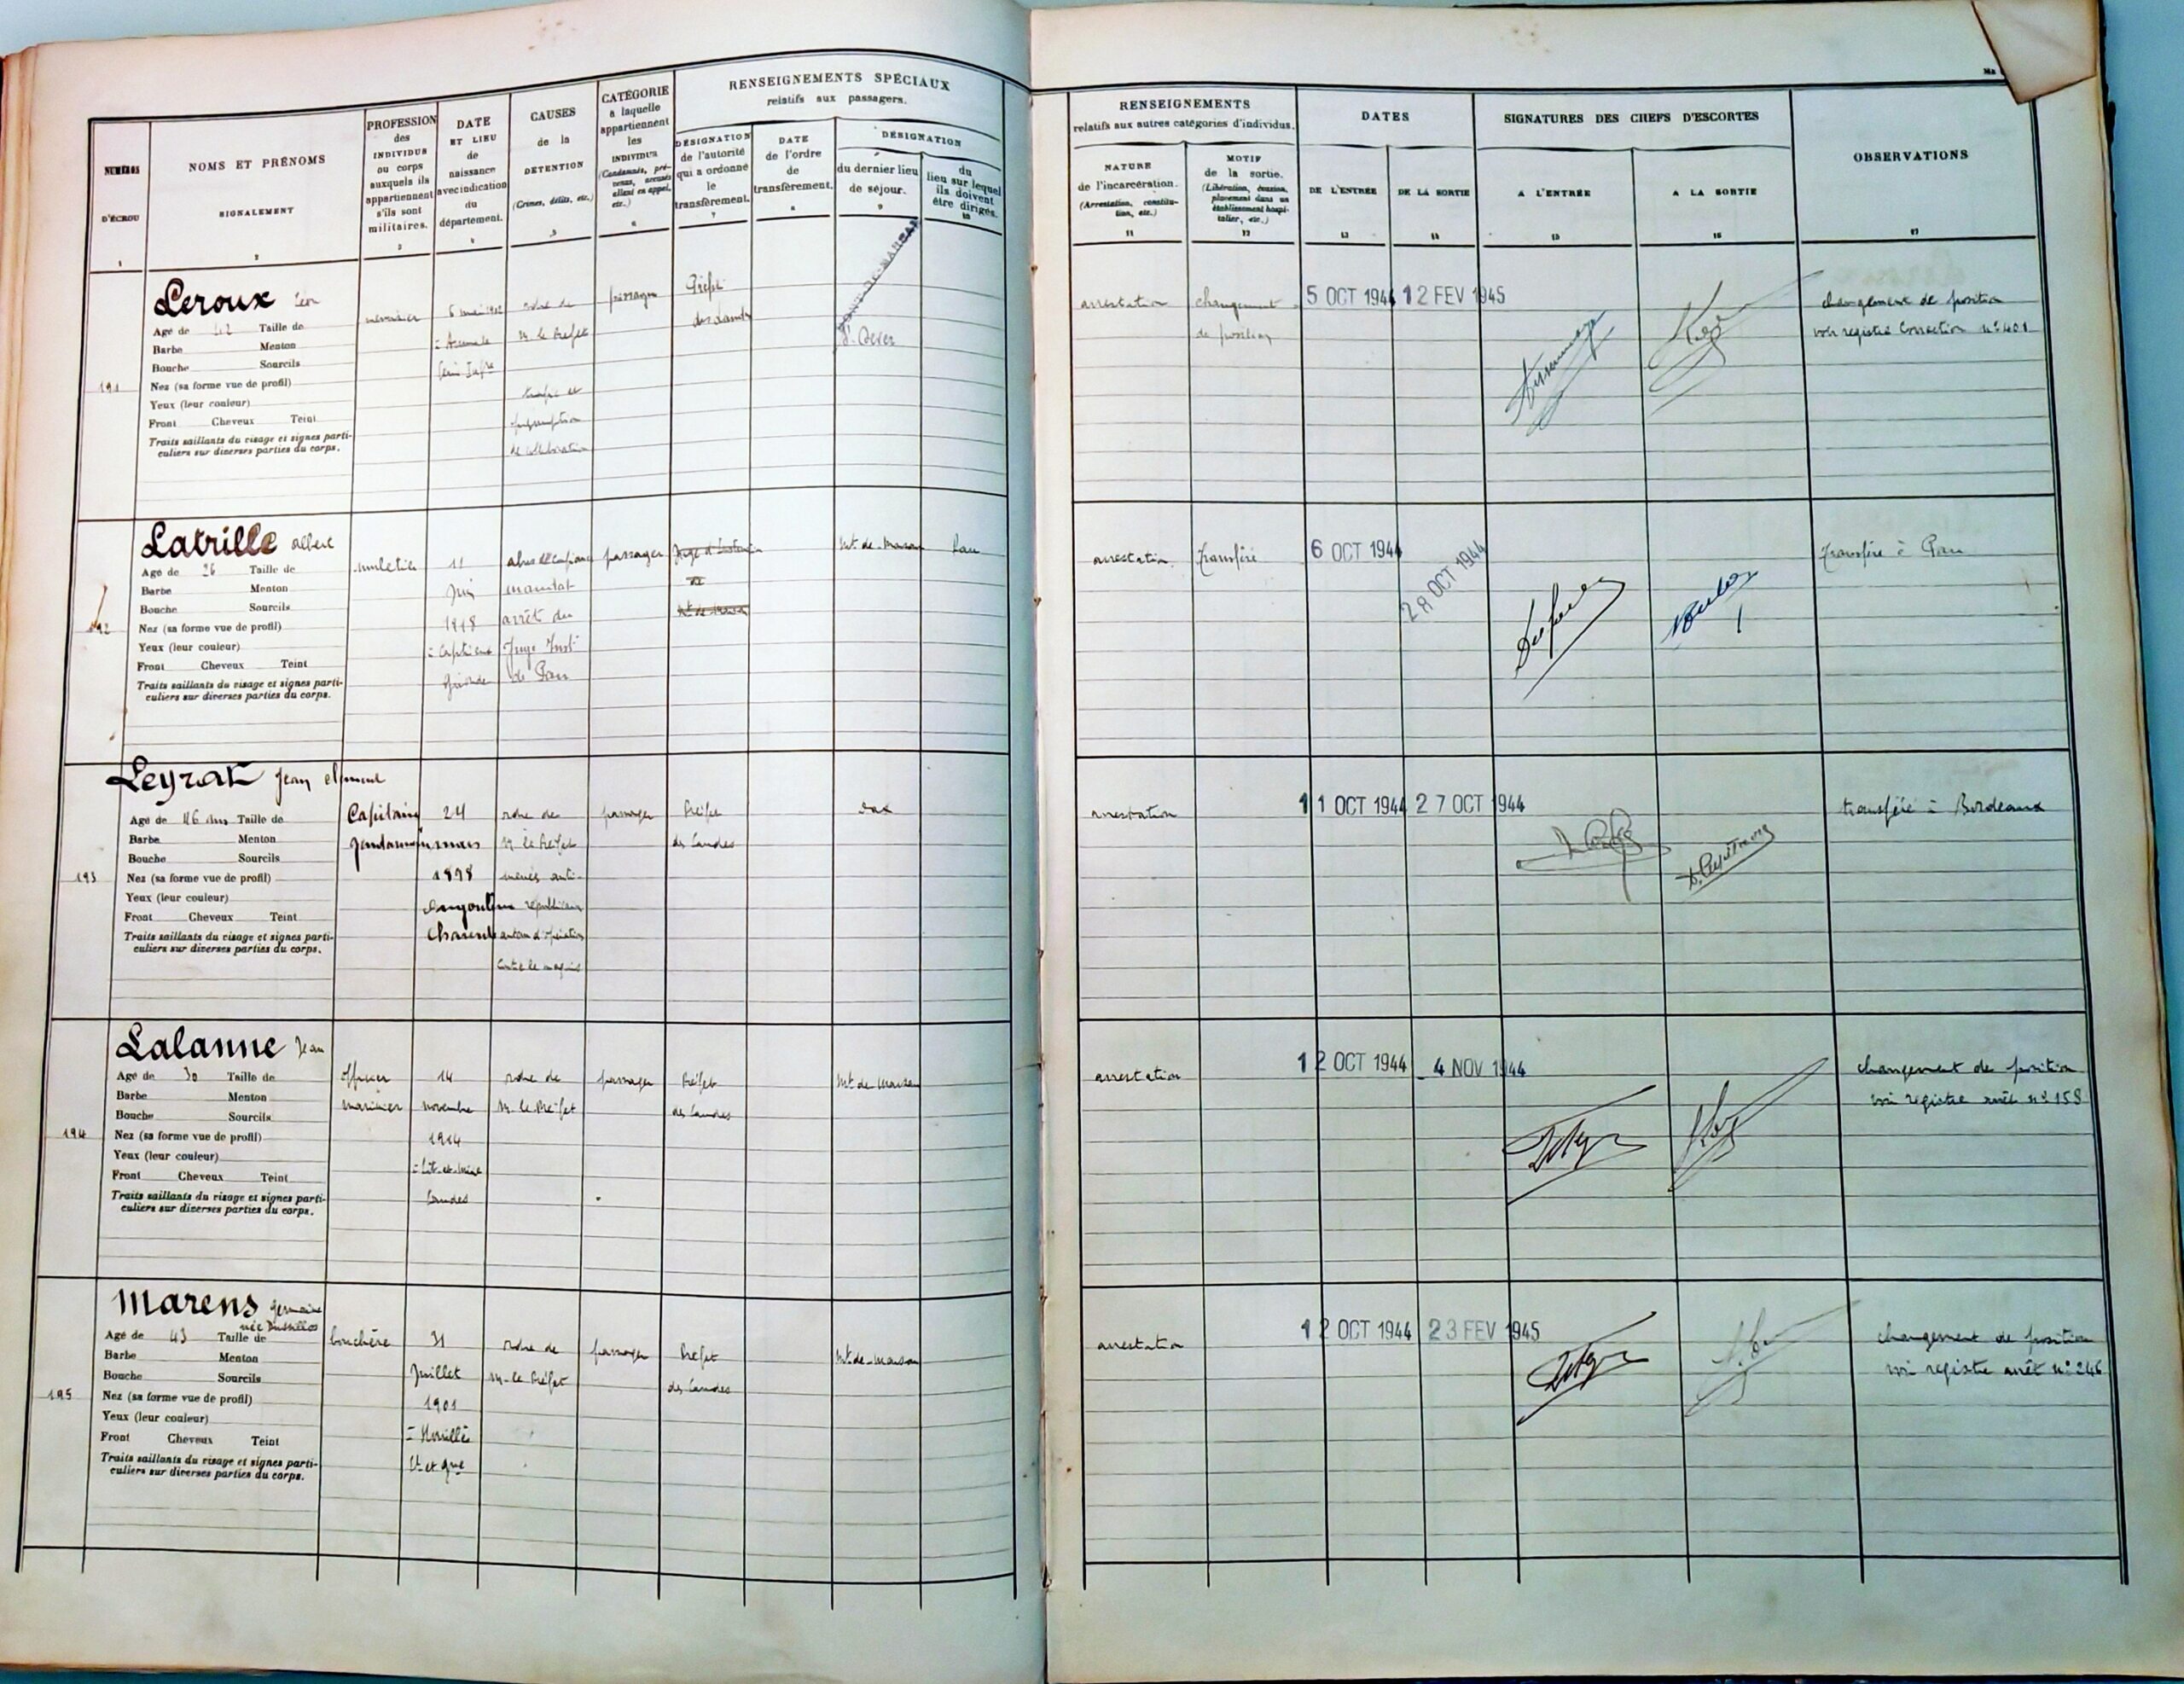 RENSEIGNEMENTS SPÉCIAUX
relatifs aux passagers.
NUMÉROS
D'ÉCROU
1
NOMS ET PRÉNOMS
SIGNALEMENT
2
PROFESSION
des
INDIVIDUS
ou corps
auxquels ils
appartiennent
s'ils sont
militaires.
3
DATE
ET LIEU
de
naissance
avec indication
du
département.
4
CAUSES
de la
DÉTENTION
(Crimes, délits, etc.)
5
CATÉGORIE
à laquelle
appartiennent
les
INDIVIDUS
(Condamnés, pré-
venus, accusés
allant en appel,
etc.)
6
DÉSIGNATION
de l'autorité
qui a ordonné
le
transfèrement.
7
DATE
de l'ordre
de
transfèrement.
8
DÉSIGNATION
du dernier lieu
de séjour.
9
du
lieu sur lequel
ils doivent
être dirigés.
10
RENSEIGNEMENTS
relatifs aux autres catégories d'individus.
NATURE
de l'incarcération.
(Arrestation, constitu-
tion, etc.)
11
MOTIF
de la sortie.
(Libération, évasion,
placement dans un
établissement hospi-
talier, etc.)
12
DATES
DE L'ENTRÉE
13
DE LA SORTIE
14
SIGNATURES DES CHEFS D'ESCORTES
A L'ENTRÉE
15
A LA SORTIE
16
OBSERVATIONS
17
191
Leroux Léon
Agé de 42 Taille de
Barbe Menton
Bouche Sourcils
Nez (sa forme vue de profil)
Yeux (leur couleur)
Front Cheveux Teint
Traits saillants du visage et signes parti-
culiers sur diverses parties du corps.
5 mai 1902
à Aumale
Seine Infre
ordre de
M. le Préfet
trafic et
présomption
de collaboration
passager
Préfet
des Landes
St. Sever
arrestation
changement
de position
5 OCT 1944
12 FEV 1945
changement de position
voir registre Correction n° 401
192
Latrille Albert
Agé de 26 Taille de
Barbe Menton
Bouche Sourcils
Nez (sa forme vue de profil)
Yeux (leur couleur)
Front Cheveux Teint
Traits saillants du visage et signes parti-
culiers sur diverses parties du corps.
muletier
11
Juin
1918
à Captieux
Gironde
abus de confiance
mandat
arrêt du
Juge Inst.
de Pau
passager
Juge d'Instruction
de
Mt de Marsan
Mt. de-Marsan
Pau
arrestation
transféré
6 OCT 1944
28 OCT 1944
transféré à Pau
193
Leyrat Jean
Agé de 46 ans Taille de
Barbe Menton
Bouche Sourcils
Nez (sa forme vue de profil)
Yeux (leur couleur)
Front Cheveux Teint
Traits saillants du visage et signes parti-
culiers sur diverses parties du corps.
Capitaine
gendarmerie
24
mars
1898
Angoulême
Charente
ordre de
M. le Préfet
menées anti-
républicaines
contre le maquis
passager
Préfet
des Landes
Dax
arrestation
11 OCT 1944
27 OCT 1944
transféré à Bordeaux
194
Lalanne Jean
Agé de 30 Taille de
Barbe Menton
Bouche Sourcils
Nez (sa forme vue de profil)
Yeux (leur couleur)
Front Cheveux Teint
Traits saillants du visage et signes parti-
culiers sur diverses parties du corps.
officier
marinier
14
novembre
1914
à Lit-et-Mixe
Landes
ordre de
M. le Préfet
passager
Préfet
des Landes
Mt de Marsan
arrestation
12 OCT 1944
4 NOV 1944
changement de position
voir registre arrêt n° 158
195
Marens Germaine
Agé de 43 Taille de
Barbe Menton
Bouche Sourcils
Nez (sa forme vue de profil)
Yeux (leur couleur)
Front Cheveux Teint
Traits saillants du visage et signes parti-
culiers sur diverses parties du corps.
bouchère
31
Juillet
1901
ordre de
M. le Préfet
passager
Préfet
des Landes
Mt. de-Marsan
arrestation
12 OCT 1944
23 FEV 1945
changement de position
voir registre arrêt n° 246